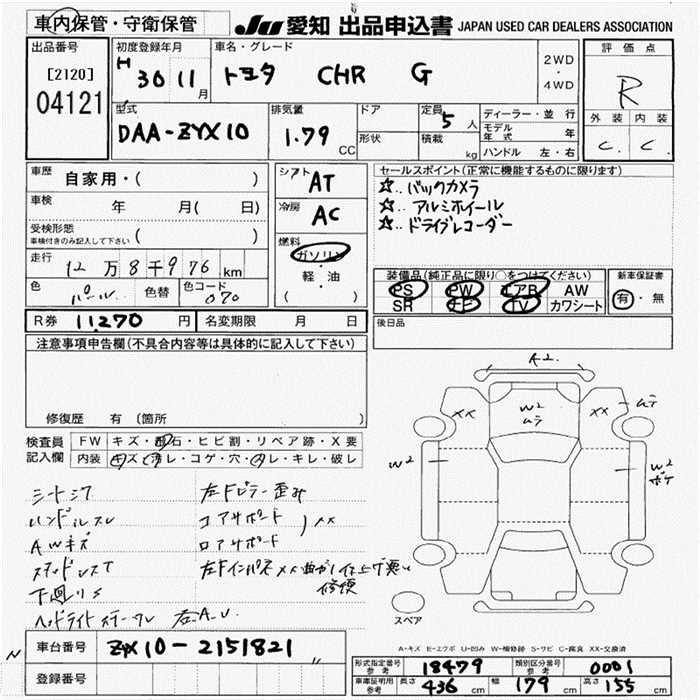 車内保管・守衛保管
JU 愛知 出品申込書 JAPAN USED CAR DEALERS ASSOCIATION
出品番号
[2120]
04121
初度登録年月
H 30 11 月
車名・グレード
トヨタ CHR G
2WD
・
4WD
評価点
R
外装 内装
C. C.
型式
DAA-ZYX10
排気量
1.79 CC
ドア
形状
定員
5 人
積載
kg
ディーラー・並行
モデル年式 年
ハンドル 左・右
車歴 自家用・( )
車検 年 月( 日)
受検形態
車検付きのみ記入して下さい ( )
走行 12万8千976 km
色 パール 色替
色コード 070
シフト AT
冷房 AC
燃料
ガソリン
・
軽・油
( )
セールスポイント(正常に機能するものに限ります)
☆‥バックカメラ
☆‥アルミホイール
☆‥ドライブレコーダー
装備品(純正品に限り○をつけてください)
PS PW エアB AW
SR ナビ TV カワシート
新車保証書
有・無
R券 11,270 円
名変期限 月 日
後日品
注意事項申告欄(不具合内容等は具体的に記入して下さい)
修復歴 有 〔箇所
検査員記入欄
FW キズ・飛石・ヒビ割・リペア跡・X要
内装 キズ・汚レ・コゲ・穴・スレ・キレ・破レ
シートシワ
ハンドルスレ
AWキズ
スタッドレスT
下廻りS
ヘッドライトスケール 右A.U
左Fピラー歪み
コアサポート
ロアサポート
XX
左Fインパネ XX 曲がり 仕上げ悪い
修復
A2
XX
W2
ムラ
XX
ムラ
W2
W2
ボケ
スペア
A-キズ E-エクボ U-凹み W-補修跡 S-サビ C-腐食 XX-交換済
車台番号 ZYX10-2151821
登録番号
形式指定番号 参考 18479
類別区分番号 参考 0001
車庫証明用 参考 長さ 436 cm 幅 179 cm 高さ 155 cm